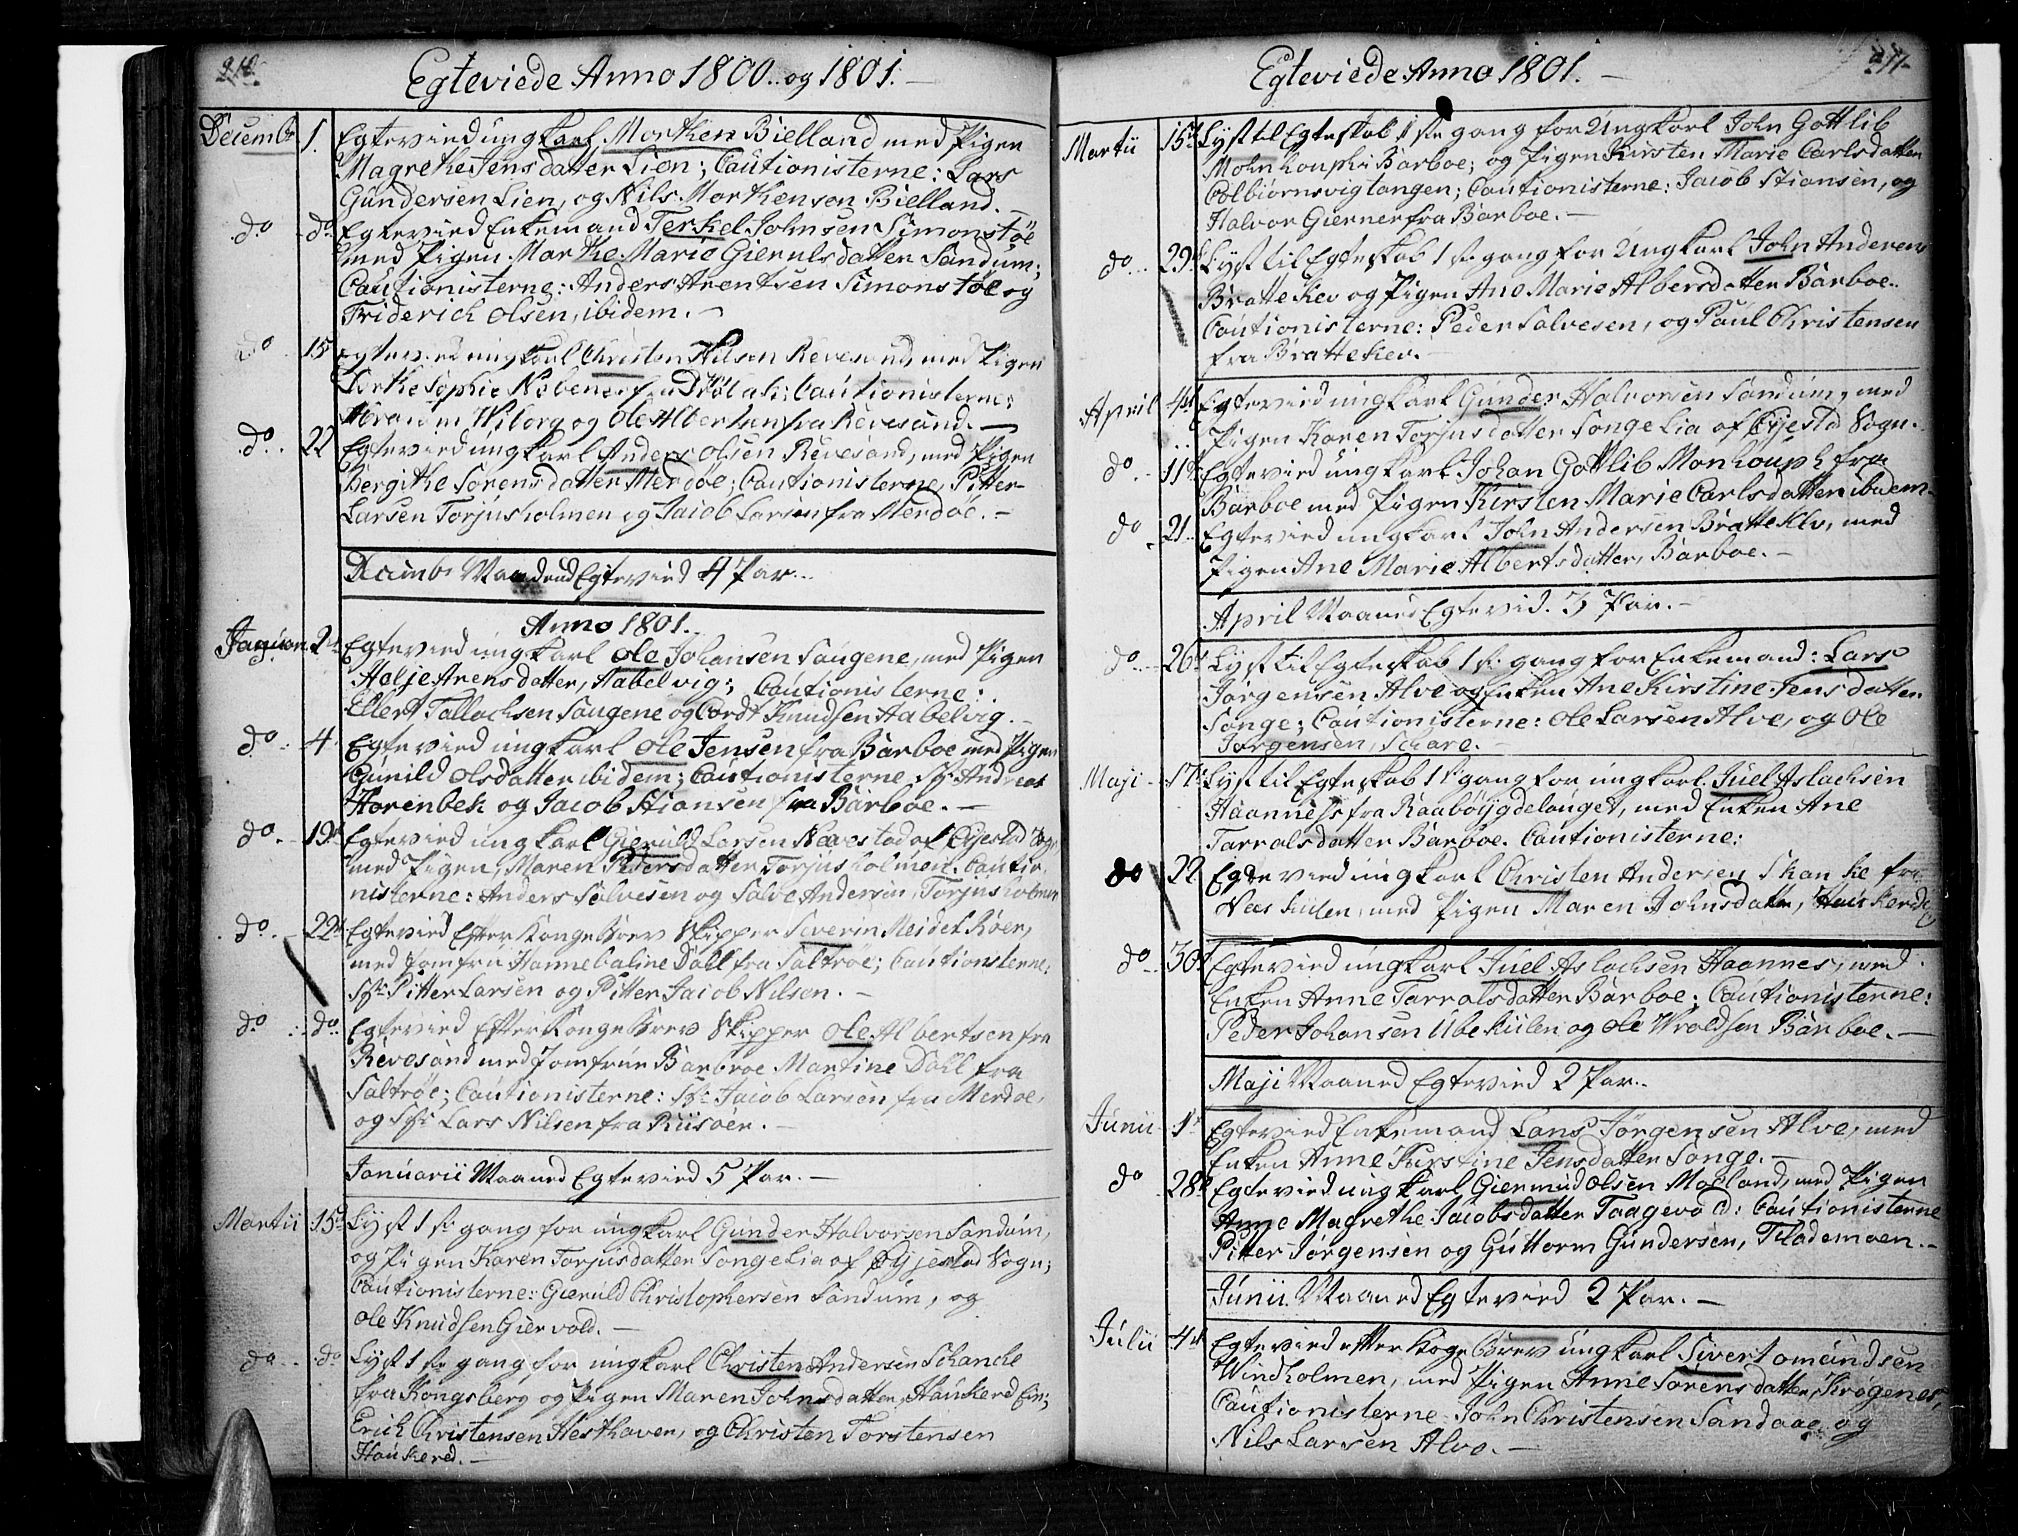 210.
Egteviede Anno 1800. og 1801. —
Decembr 1. Egtevied ungkarl Morthen Bielland med Pigen
Magrethe Jensdatter Lien; Cautionisterne: Lars
Gundersen Lien, og Nils Morthenson Bielland. —
do do Egtevied Enkemand Terkel Johnsen Simonstöe
med Pigen Marthe Marie Gierulsdatter Sandum;
Cautionisterne: Anders Arentsen Simonstöe og
Friderich Olsen, ibidem. —
do 15 Egtevied ungkarl Christen Nilsen Revesand, med Pigen
Sophie
Wiborg og Ole Albertsen fra Revesand. —
do. 22 Egtevied ungkarl Anders Olsen Revesand, med Pigen
Bergithe Sörensdatter Merdöe; Cautionisterne, Pitter
Larsen Torjusholmen og Jacob Larsen fra Merdöe. —
Decembr Maaned Egtevied 4 Par. —
Anno 1801.
Januar. 2d Egtevied ungkarl Ole Johansen Saugene, med Pigen
Helje Arensdatter, Aabelvig; Cautionisterne:
Ellert Tallachsen Saugene og Cordt Knudsen Aabelvig. —
do. 4. Egtevied ungkarl Ole Jensen fra Barboe med Pigen
Gunild Olsdatter ibidem; Cautionisterne Sr Andreas
Horenbek og Jacob Stiansen fra Barboe. —
do. 19de Egtevied ungkarl Gieruld Larsen Nævestad af Öjestad Sogn
med Pigen, Maren Pedersdatter Torjusholmen. Cautio-
nisterne: Anders Salvesen og Salve Andersen, Torjusholmen
do. 22d Egtevied Efter Konge Brev Skipper Severin Meidel Röer,
med Jomfru Hanne Caline Dahl fra Saltröe; Cautionisterne,
Sr Pitter Larsen og Pitter Jacob Nilsen. —
do do. Egtevied Efter Konge Brev Skipper Ole Albertsen fra
Revesand med Jomfrue Barbroe Martine Dahl fra
Saltröe; Cautionisterne: Sr Jacob Larsen fra Merdoe,
og Sr Lars Nilsen fra Riisöer. —
Januarii Maaned Egtevied 5 Par. —
Martii 15d Lyst 1ste gang for ungkarl Gunder Halvorsen Sandum,
og Pigen Karen Torjusdatter Songe Lia af Öyjestad Sogn;
Cautionisterne: Gieruld Christophersen Sandum, og
Ole Knudsen Giervold. —
do. do Lyst 1ste gang for ungkarl Christen Andersen Schanche
fra Kongsberg og Pigen Maren Johnsdatter, Haukered Eie;
Erich Christensen Hesthaven, og Christen Torstensen
Haukered. —
211.
Egteviede Anno 1801. —
Martii 15d Lyst til Egteskab 1ste gang for Ungkarl John Gottlib
Mohnkouph Barboe; og Pigen Kirsten Marie Carlsdatter
Colbiornsvigtangen; Cautionisterne: Jacob Stiansen, og
Halvor Gierner fra Barboe. —
do. 29d Lyst til Egteskab 1ste gang for Ungkarl John Andersen
Bratteklev og Pigen Ane Marie Albersdatter Barboe.
Cautionisterne: Peder Salvesen, og Paul Christensen
fra Bratteklev. —
April 4d Egtevied ungkarl Gunder Halvorsen Sandum, med
Pigen Karen Torjusdatter Songe Lia af Öjestad Sogn.
do. 11te Egtevied ungkarl Johan Gottlib Monkouph fra
Barboe med Pigen Kirsten Marie Carlsdatter ibidem
do 21. Egtevied ungkarl John Andersen Bratteklev, med
Pigen Ane Marie Albertsdatter, Barboe. —
April Maaned Egtevid. 3 Par. —
do. 26d Lyst til Egteskab 1ste gang for Enkemand: Lars
Jörgensen Alve og Enken Ane Kirstine Jensdatter
Songe; Cautionisterne: Ole Larsen Alve, og Ole
Jörgensen, Schare. —
Maji 17. Lyst til Egteskab 1ste gang for ungkarl Juel Aslachsen
Haannes fra Raaböygdelauget, med Enken Ane
Tarralsdatter Barboe. Cautionisterne:
do 22 Egtevied ungkarl Christen Andersen Skanke fra
Næskilen, med Pigen Maren Johnsdatter, Haukered
do. 30d Egtevied ungkarl Juel Aslachsen Haannes, med
Enken Anne Tarralsdatter Barboe; Cautionisterne:
Peder Johansen Ubekiilen og Ole Wroldsen Barboe. —
Maji Maaned Egtevied 2 Par.
Junii 1t Egtevied Enkemand Lars Jörgensen Alve, med
Enken Anne Kirstine Jensdatter Songe. —
do 28d Egtevied ungkarl Giermund Olsen Mosland, med Pigen
Anne Magrethe Jacobsdatter Taagevold: Cautionisterne
Pitter Jörgensen og Guttorm Gundersen, Flademoen. —
Junii Maaned Egtevied 2 Par. —
Julii 4d Egtevied efter Koge Brev ungkarl Sivert Omundsen
Windholmen, med Pigen Anne Sörensdatter, Krögenes,
Cautionisterne: John Christensen Sandaae, og
Nils Larsen Alve. —